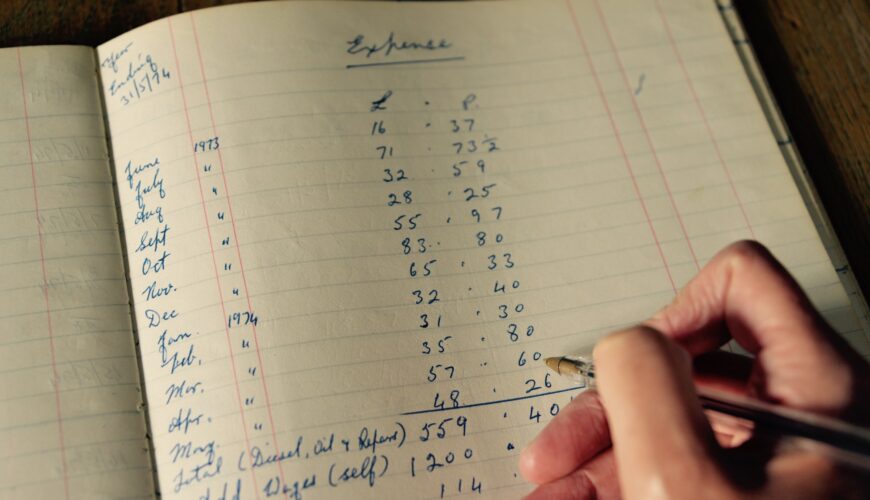 Year
Ending
31/5/74
Expence
£ · P.
June 1973 16 · 37
July " 71 · 73½
Aug " 32 · 59
Sept " 28 · 25
Oct " 55 · 97
Nov. " 83 · 80
Dec " 65 · 33
Jan. 1974 32 · 40
Feb. " 31 · 30
Mar. " 35 · 80
Apr. " 57 · 60
May " 48 · 26
Total (Diesel, Oil & Repairs) 559 · 40
Add Wages (self) 1200 ·
114